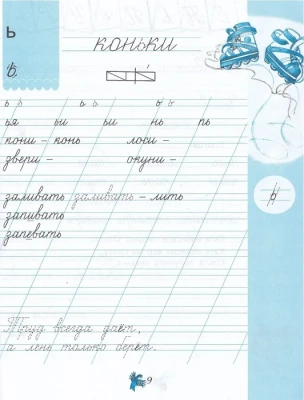 ь
коньки
ь
ь ь ь ь ь ь
ья ьи ьи нь пь
кони – конь лоси –
двери – окуни –
заливать заливать – лить
запивать
запевать
Труд всегда даёт,
а лень только берёт.
9